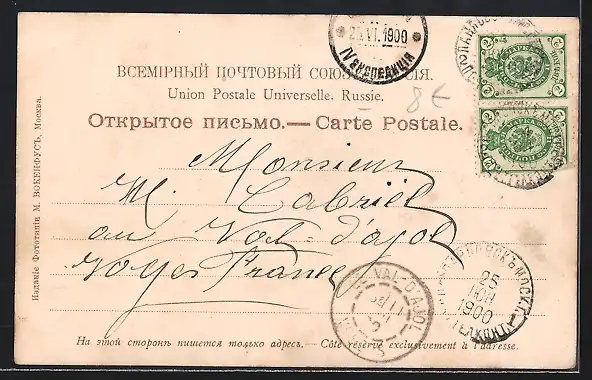 25 VI. 1900
IV ЭКСПЕДИЦІЯ
ВСЕМІРНЫЙ ПОЧТОВЫЙ СОЮЗ РОССІЯ.
Union Postale Universelle. Russie.
8€
Открытое письмо.—Carte Postale.
Monsieur
M. Gabriel
au Val-d'ajol
Vosges France
VAL-D'AJOL
МОСКВА
25
ІЮН
1900
На этой сторонѣ пишется только адресъ.—Côté réservé exclusivement à l'adresse.
Изданіе Фототипіи М. ВОКЕНФУСЪ, Москва.